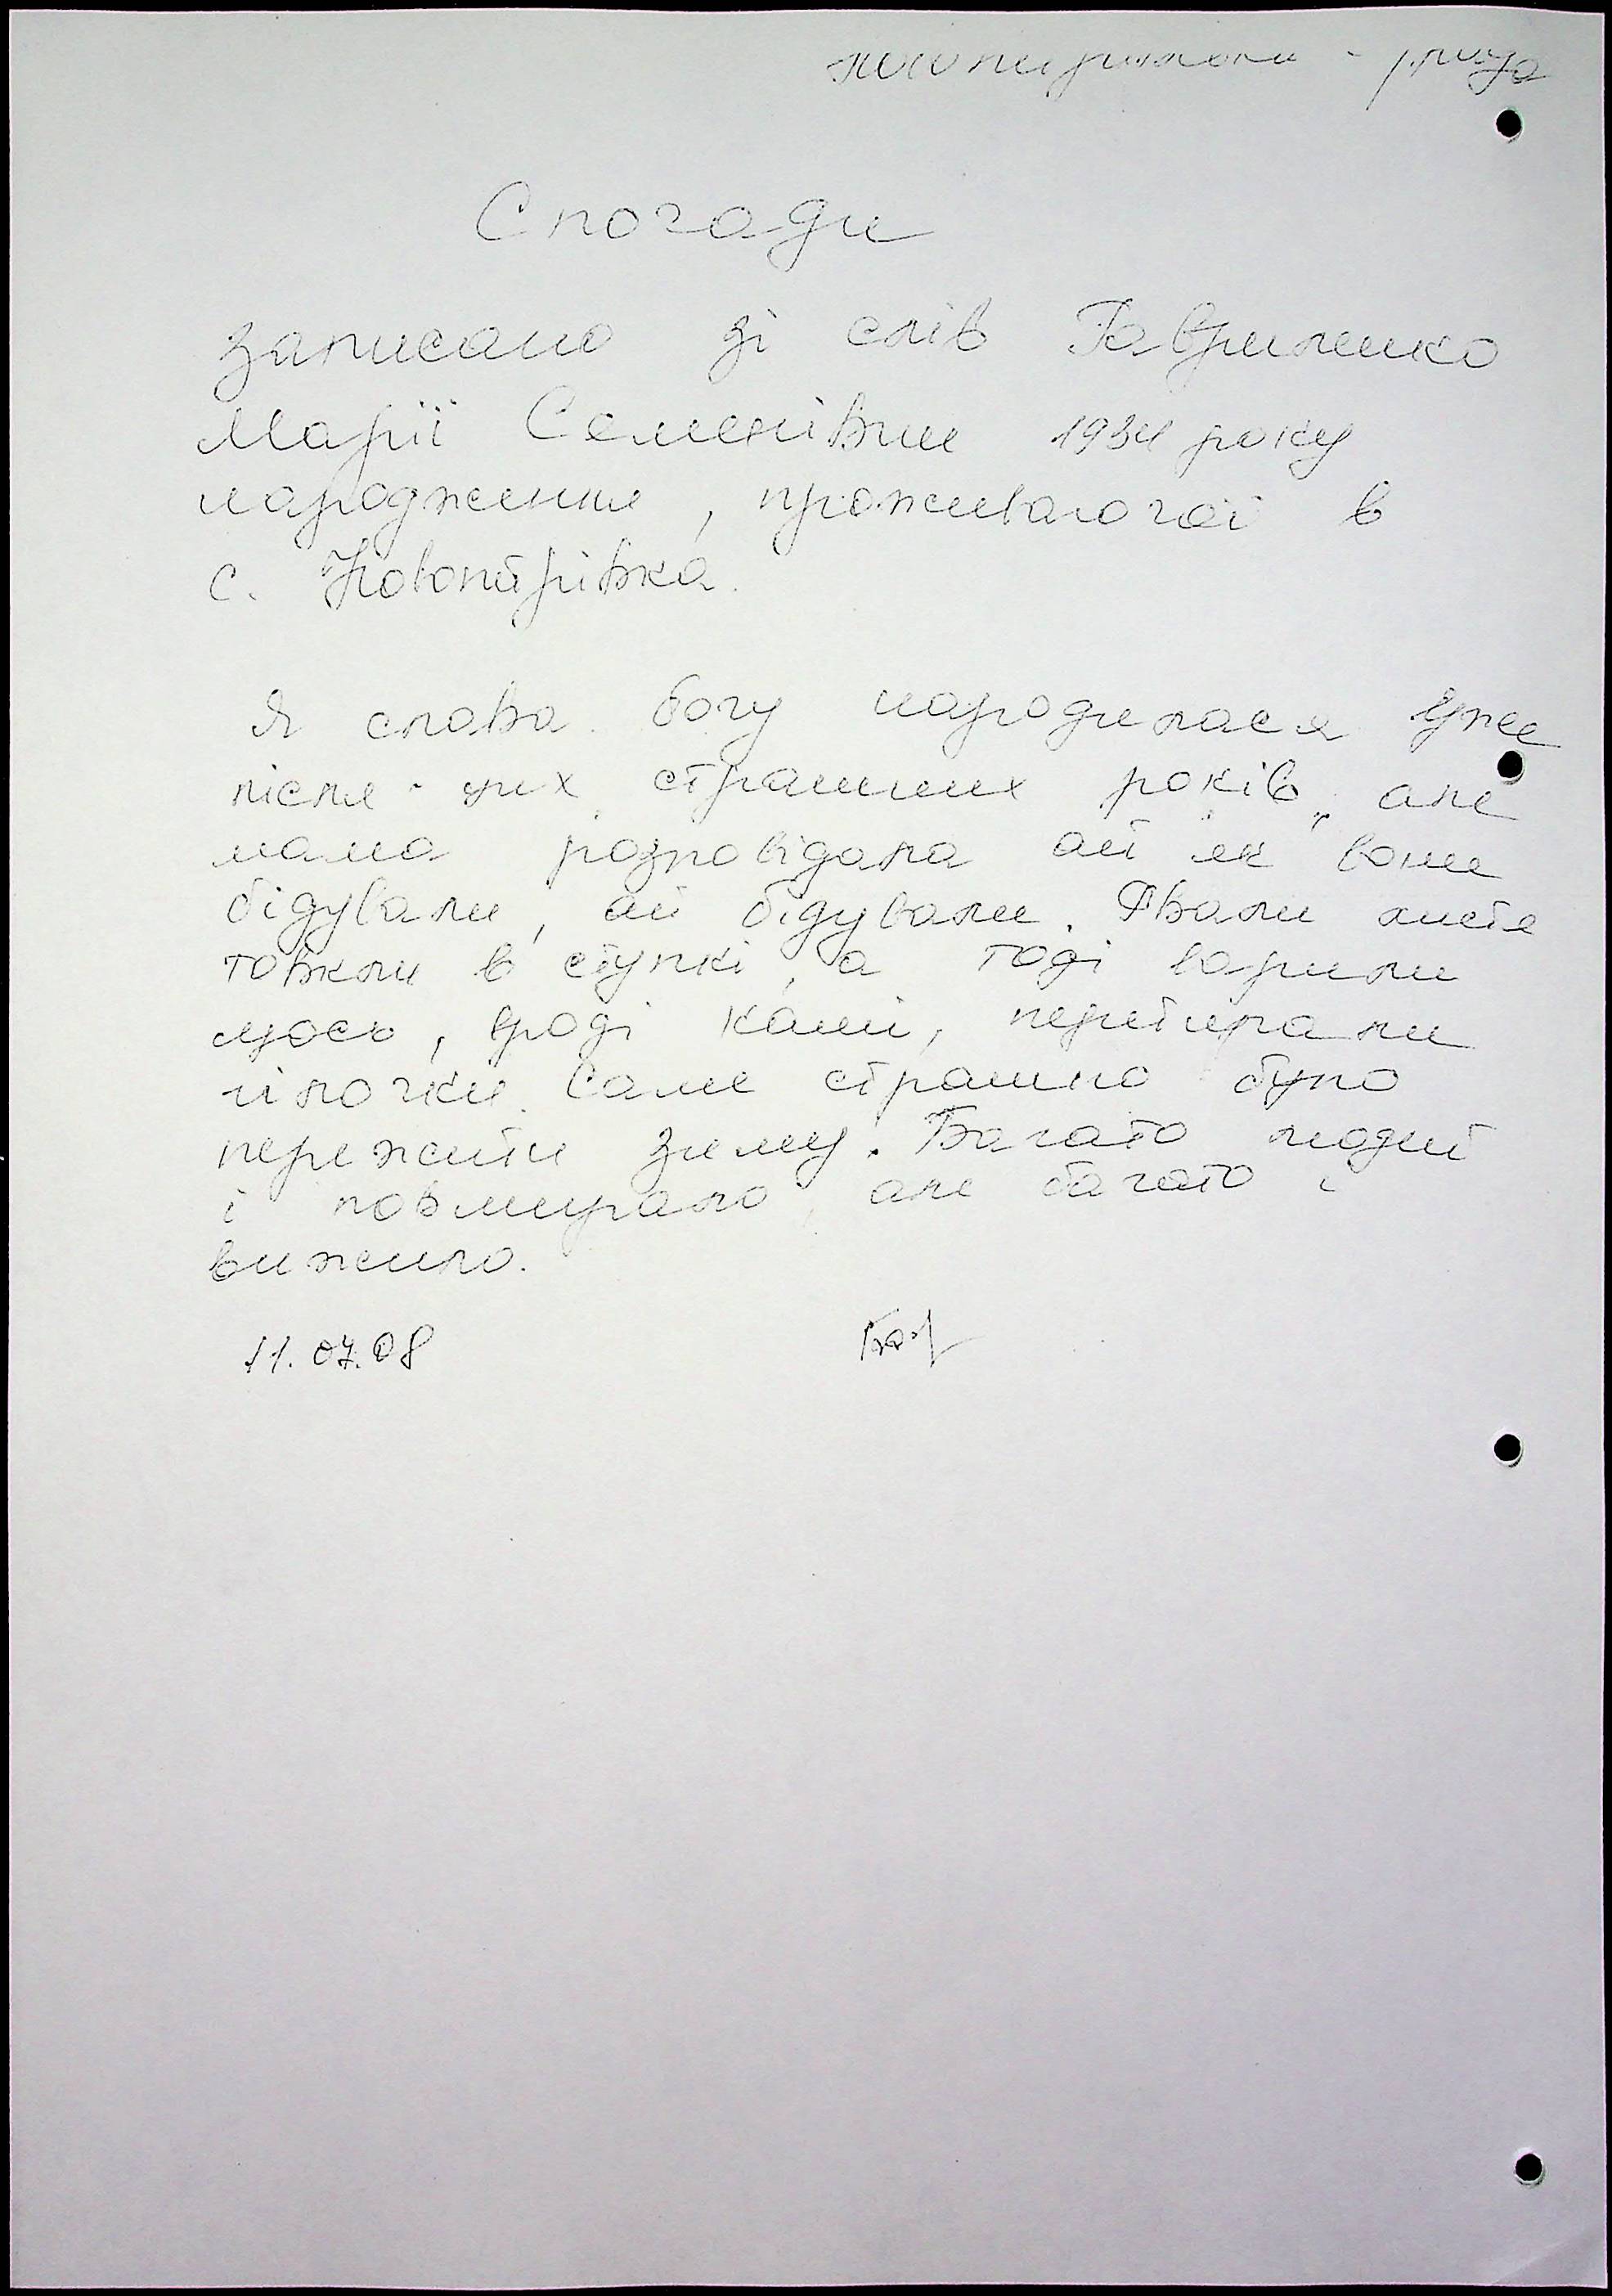 Спогади
записано зі слів Гавриленко
Марії Семенівни 1934 року
народження, проживаючої в
с. Новопетрівка.
Я слава богу народилася вже
після тих страшних років, але
мама розповідала ой як вони
бідували, ой бідували. Рвали листя
товкли в ступкі, а тоді варили
щось, вроді каші, перетирали
гілочки. Саме страшно було
пережити зиму. Багато людей
і повмирало, але багато і
вижило.
11.07.08